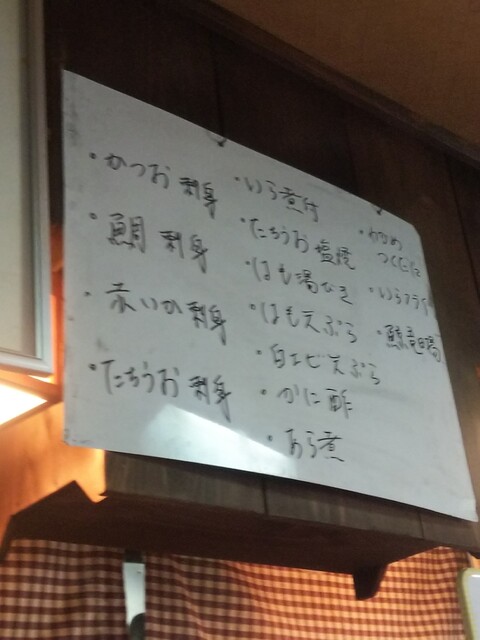 ・かつお 刺身
・鯛 刺身
・赤いか 刺身
・たちうお 刺身
・いら煮付
・たちうお 塩焼
・はも湯びき
・はも天ぷら
・白エビ天ぷら
・かに酢
・あら煮
・わかめ
つくだに
・いらフライ
・鯨竜田揚